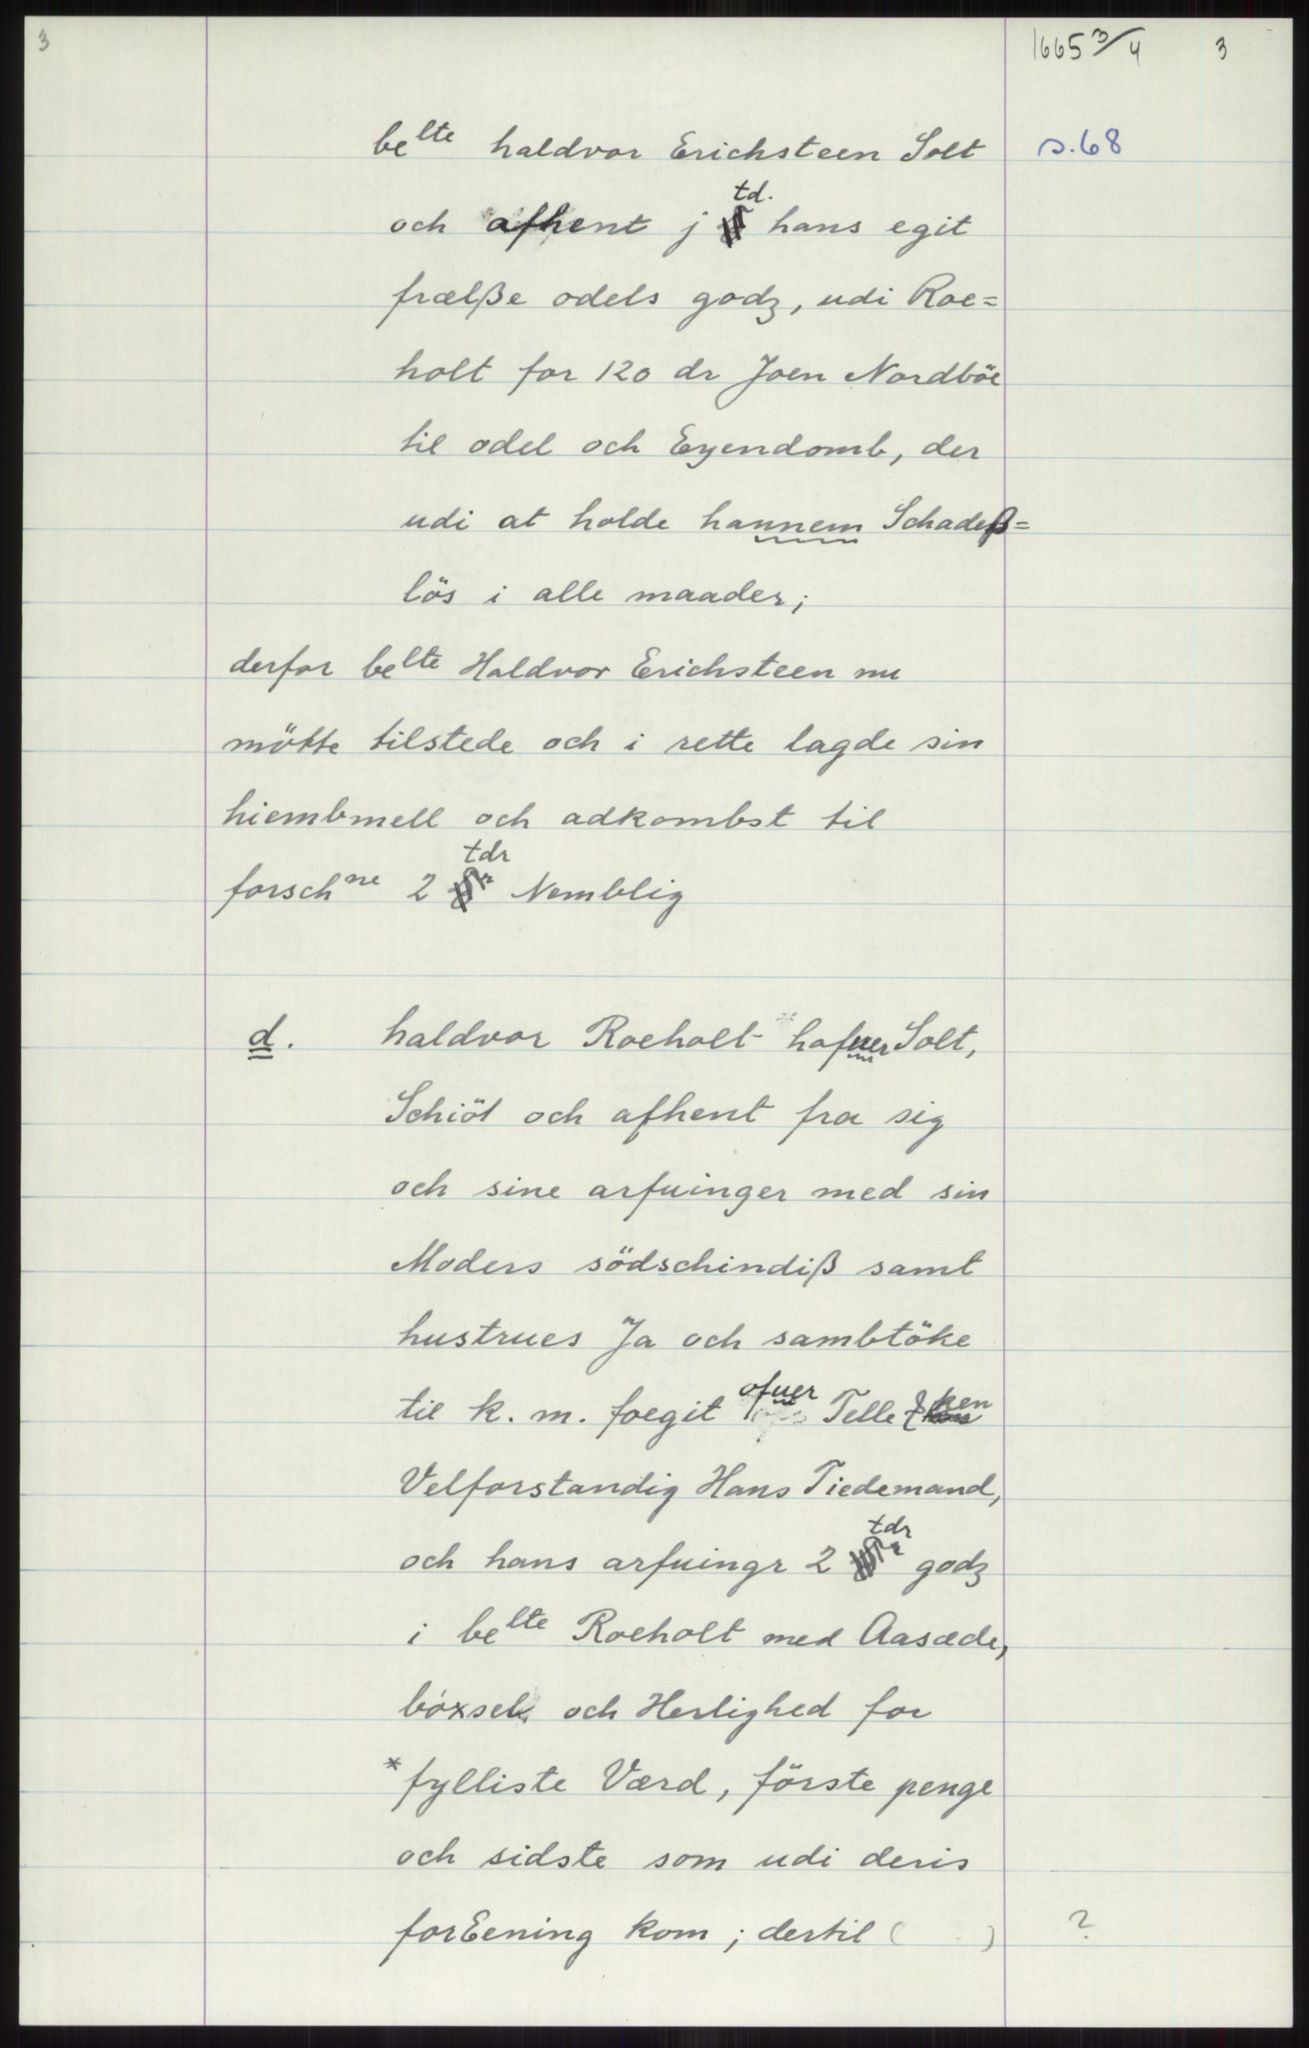 3
1665 3/4 3
be lte haldvor Erichsteen Solt s.68
td.
och afhent j hans egit
frælße odels godz, udi Roe=
holt for 120 dr Joen Nordböe
til odel och Eyendomb, der
udi at holde hannem Schadeß=
lös i alle maader;
derfor be lte Haldvor Erichsteen nu
mötte tilstede och i rette lagde sin
hiembmell och adkombst til
tdr
forsch ne 2 Nemblig
d. haldvor Roeholt hafuer Solt,
Schiöt och afhent fra sig
och sine arfuinger med sin
Moders södschindiß samt
hustrues Ja och sambtöke
ofuer ken
til k. m. foegit Telle
Velforstandig Hans Tiedemand,
tdr
och hans arfuingr 2 godz
i be lte Roeholt med Aasæde,
böxsel och Herlighed for
*fylliste Værd, förste penge
och sidste som udi deris
forEening kom; dertil ( ) ?